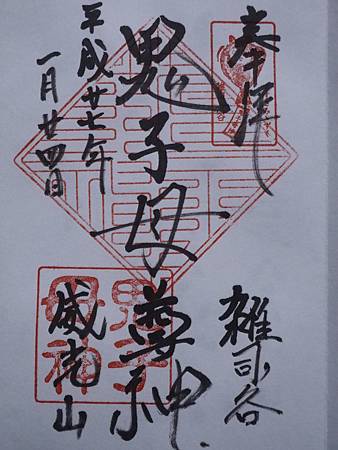 奉拝
雑司谷
鬼子母尊神
威光山
平成廿七年
一月廿四日
鬼子
母神